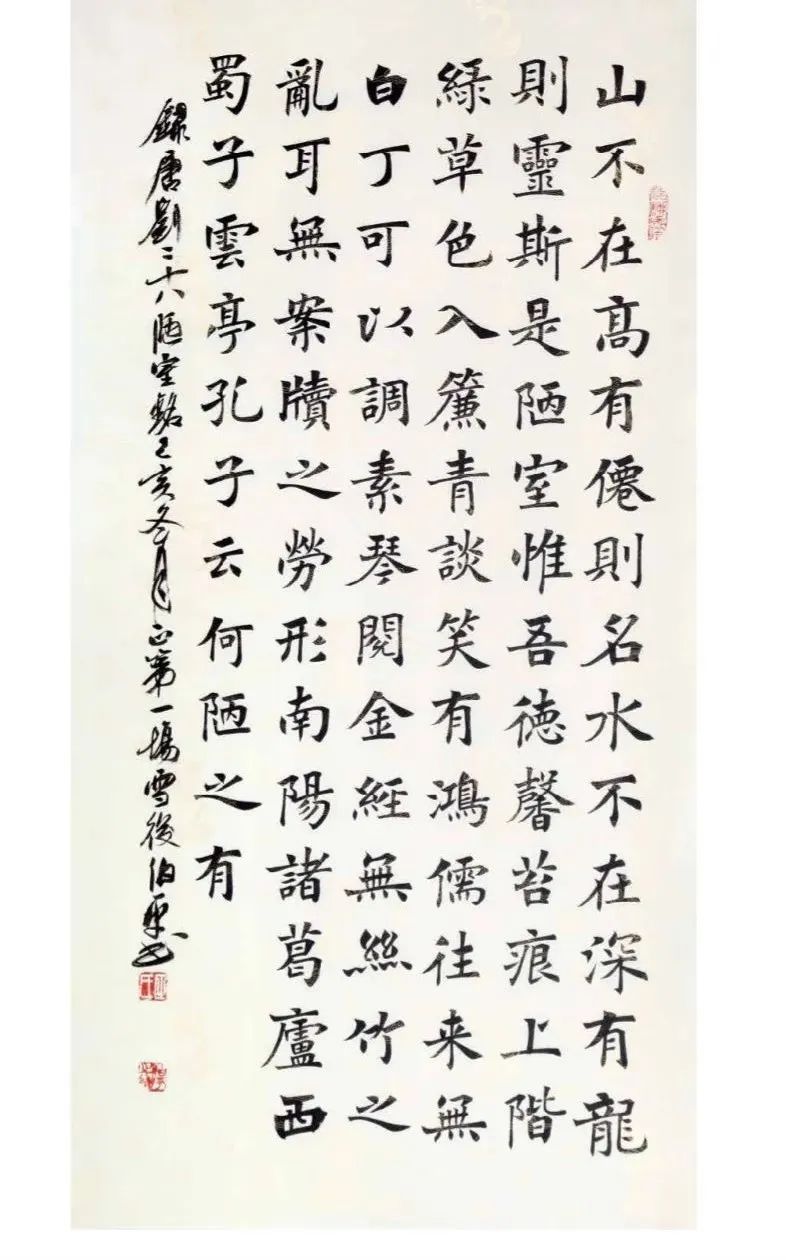 山不在高有僊則名水不在深有龍
則靈斯是陋室惟吾德馨苔痕上階
綠草色入簾青談笑有鴻儒往来無
白丁可以調素琴閱金經無絲竹之
亂耳無案牘之勞形南陽諸葛廬西
蜀子雲亭孔子云何陋之有
錄唐劉二十八陋室銘己亥冬月正第一場雪後伯